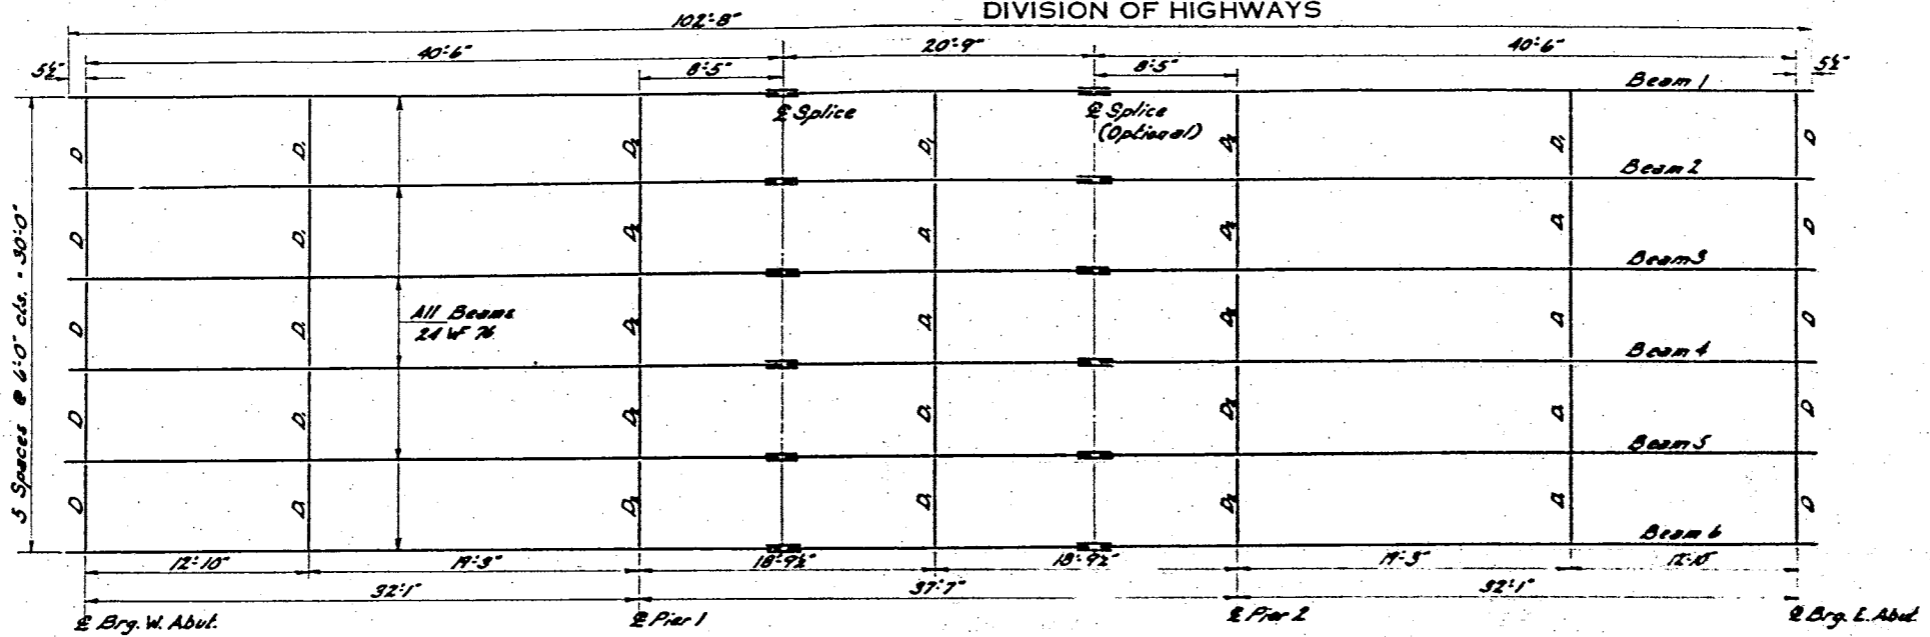 DIVISION OF HIGHWAYS
102'-8"
40'-6" 20'-9" 40'-6"
5½" 8'-5" 8'-5" 5½"
Beam 1
℄ Splice ℄ Splice
(Optional)
D D₁ D₂ D₁ D₂ D₁ D
Beam 2
D D₁ D₂ D₁ D₂ D₁ D
Beam 3
All Beams
24 WF 76
D D₁ D₂ D₁ D₂ D₁ D
Beam 4
D D₁ D₂ D₁ D₂ D₁ D
Beam 5
D D₁ D₂ D₁ D₂ D₁ D
Beam 6
5 Spaces @ 6'-0" cts. = 30'-0"
12'-10" 19'-3" 18'-9½" 18'-9½" 19'-3" 12'-10"
32'-1" 37'-7" 32'-1"
℄ Brg. W. Abut. ℄ Pier 1 ℄ Pier 2 ℄ Brg. E. Abut.